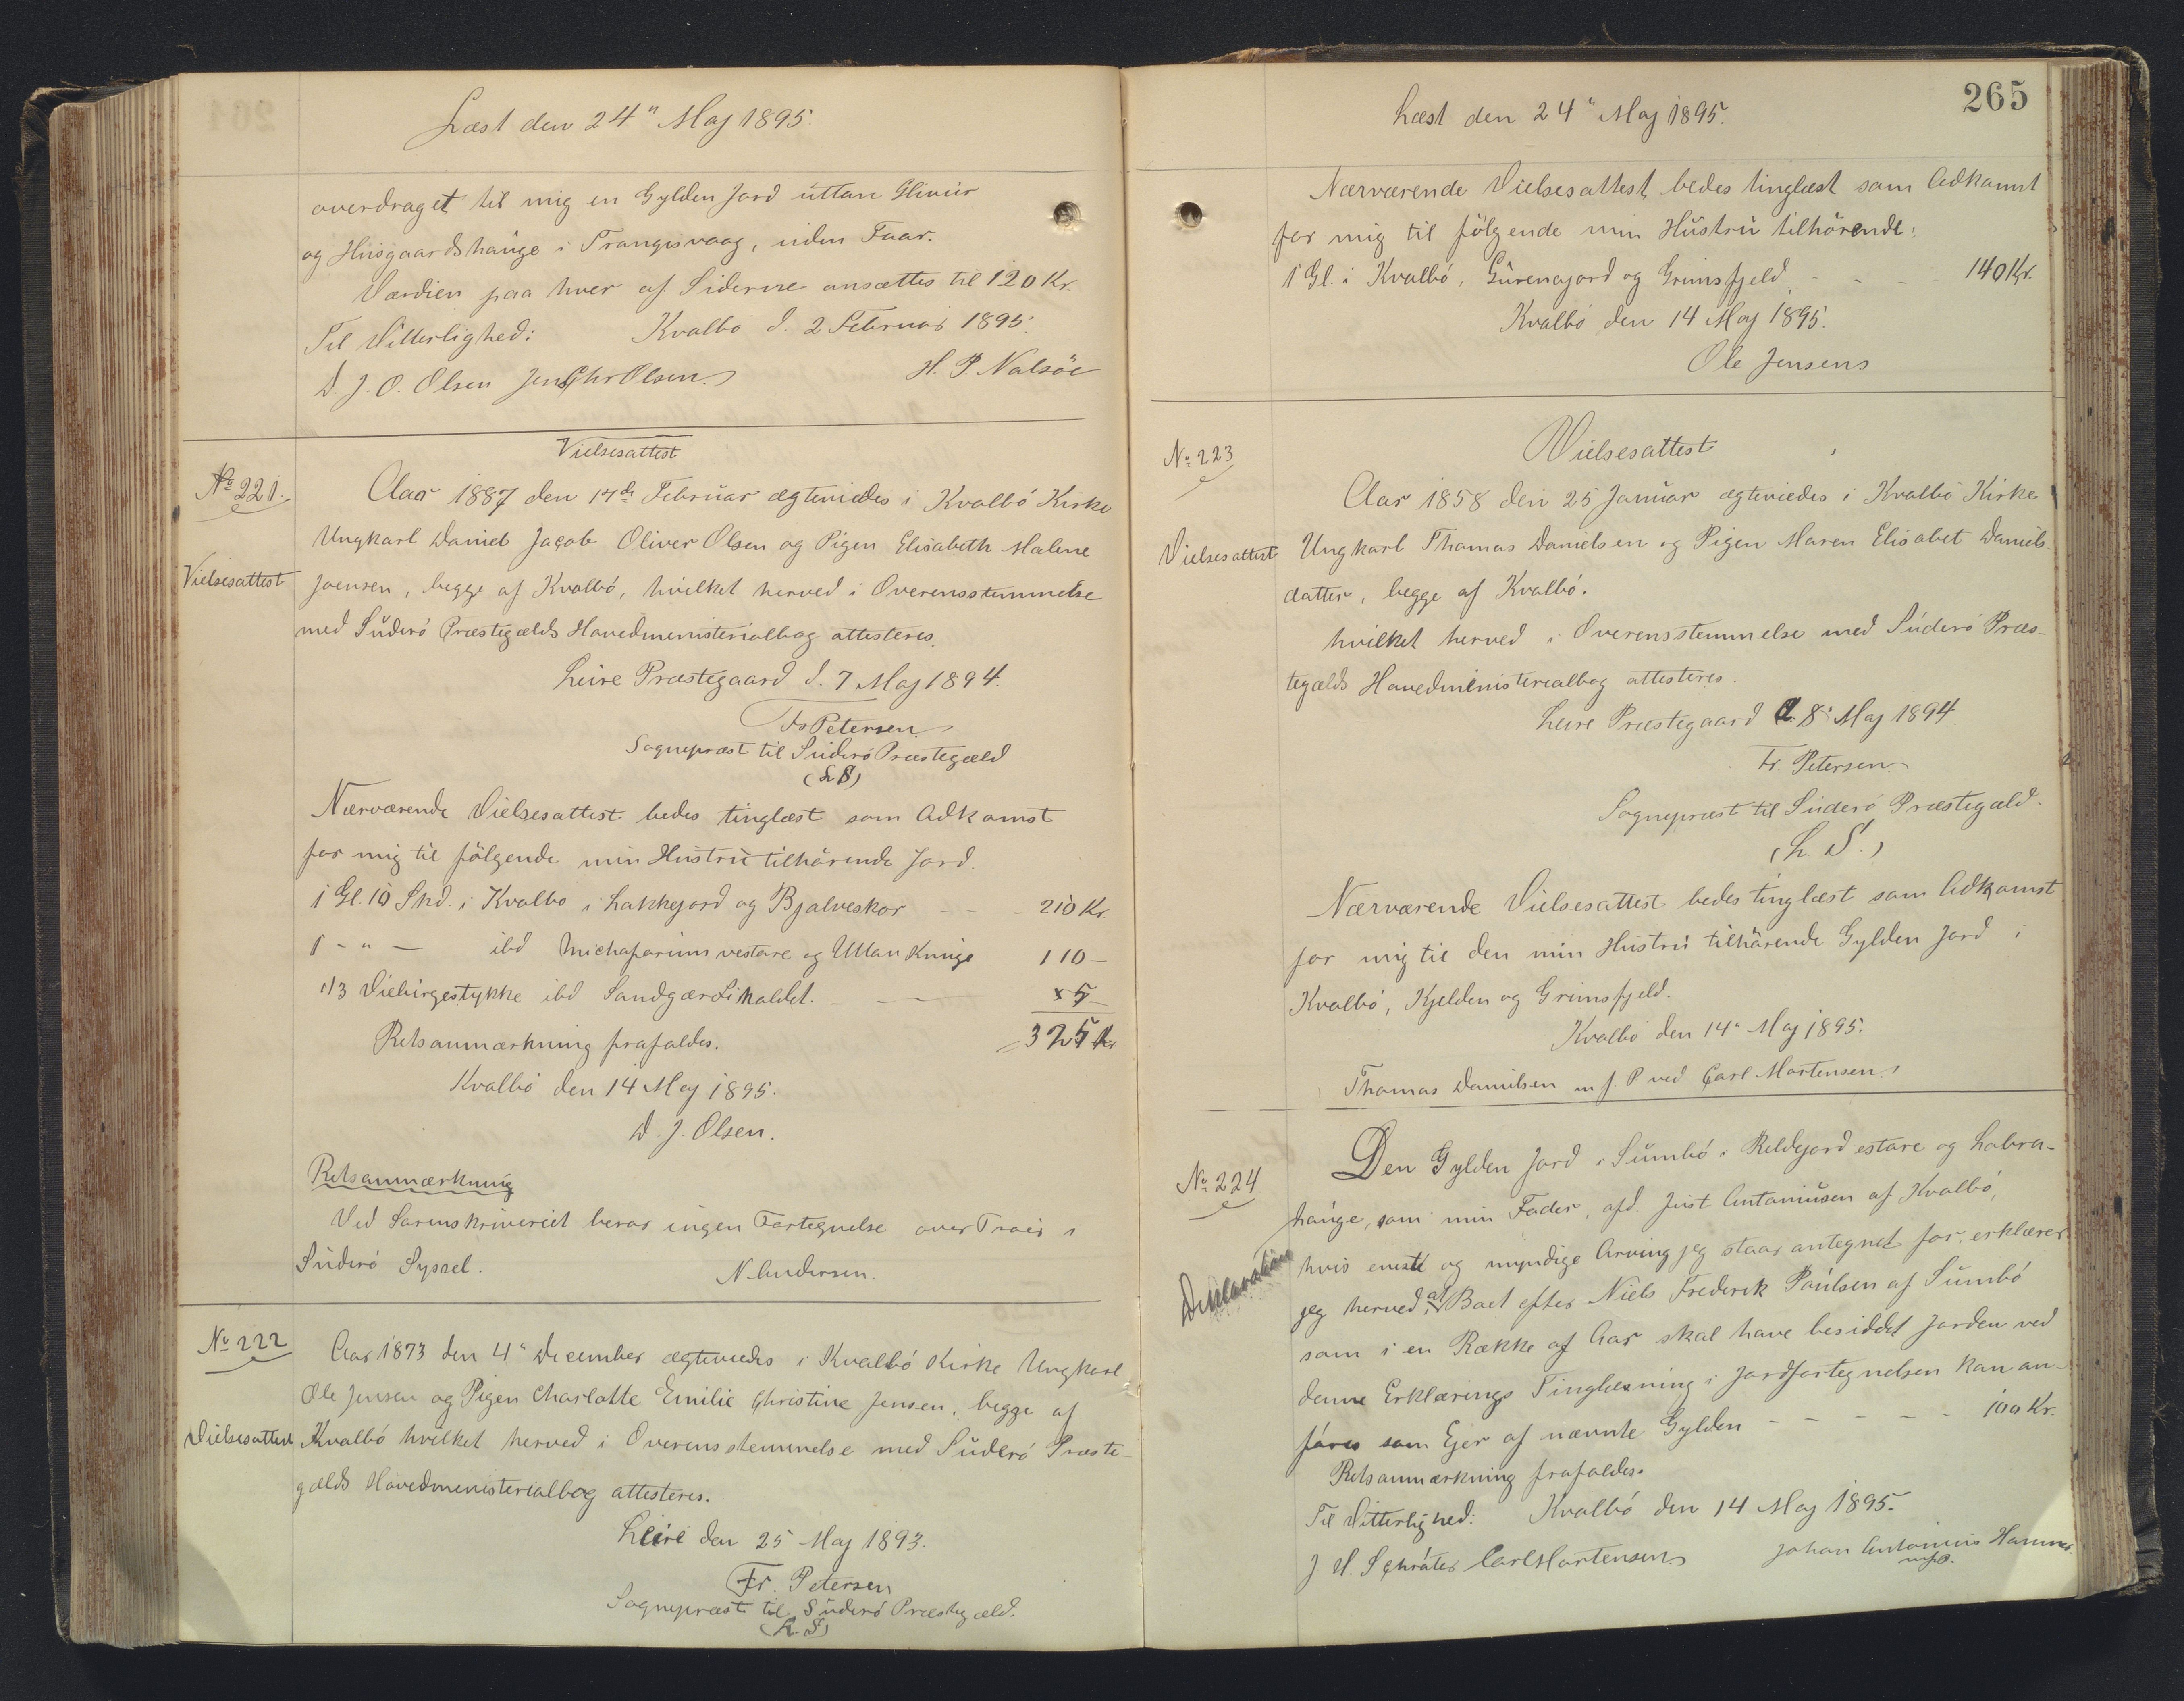 Læst den 24" Maj 1895
overdraget til mig en Gylden Jord úttan Glivúr
og Húsgaardshange i Trangisvaag, uden Faar.
Værdien paa hver af Siderne ansættes til 120 Kr.
Til Vitterlighed: Kvalbö d. 2 Februar 1895.
D. J. O. Olsen Jens Chr Olsen. H. P. Nalsöe
Vielsesattest
No 221.
Aar 1887 den 17de Februar ægteviedes i Kvalbó Kirke
Ungkarl Daniel Jacob Oliver Olsen og Pigen Elisabeth Malene
Vielsesattest
Joensen, begge af Kvalbó, hvilket herved i Overensstemmelse
med Súderó Præstegælds Hovedministerialbog attesteres.
Leire Præstegaard d. 7 Maj 1894.
Fr Petersen
Sognepræst til Súderó Præstegæld
(L S)
Nærværende Vielsesattest bedes tinglæst som Adkomst
for mig til fölgende min Hustrú tilhörende Jord.
1 Gl. 10 Skd. i Kvalbo i Lakkejord og Bjalveskor - - - 210 Kr.
1 - " - ibd Michaferium vestare og Uttan Knúge 110 -
1/3 Viebirgestykke ibd Sandgærdi kaldet. - - x 5 -
Retsanmærkning frafaldes. = 325 Kr
Kvalbó den 14 Maj 1895.
D. J. Olsen.
Retsanmærkning
Ved Sorenskriveriet beror ingen Fortegnelse over Traer i
Súderó Syssel. N. Andersen.
No 222
Aar 1873 den 4" December ægteviedes i Kvalbó Kirke Ungkarl
Ole Jensen og Pigen Charlotte Emilie Christine Jensen, begge af
Vielsesattest
Kvalbó hvilket herved i Overensstemmelse med Súderó Præste-
gælds Hovedministerialbog attesteres.
Leire den 25 Maj 1893.
Fr. Petersen
Sognepræst til Súderó Præstegæld.
(L. S)
265
Læst den 24" Maj 1895.
Nærværende Vielsesattest bedes tinglæst som Adkomst
for mig til fölgende min Hústrú tilhörende:
1 Gl. i Kvalbó, Gúrenajord og Grimsfjeld - - - 140 Kr.
Kvalbó den 14 Maj 1895.
Ole Jensens
No 223
Vielsesattest
Aar 1858 den 25 Januar ægteviedes i Kvalbó Kirke
Vielsesattest
Ungkarl Thomas Danielsen og Pigen Maren Elisabet Daniels-
datter, begge af Kvalbó.
hvilket herved i Overensstemmelse med Súderó Præs-
tegælds Hovedministerialbog attesteres.
Leire Præstegaard d. 8' Maj 1894.
Fr. Petersen
Sognepræst til Súderó Præstegæld.
(L. S.)
Nærværende Vielsesattest bedes tinglæst som Adkomst
for mig til den min Hústrú tilhörende Gylden Jord i
Kvalbó, Kjelden og Grimsfjeld.
Kvalbó den 14" Maj 1895.
Thomas Danielsen m f. P ved Carl Mortensen.
No 224
Den Gylden Jord i Súmbó i Keldejord estare og Labra-
hange, som min Fader, afd. Just Antoniúsen af Kvalbó,
Deklaration
hvis eneste og myndige Arving jeg staar antegnet for, erklærer
jeg herved, at Boet efter Niels Frederik Paúlsen af Súmbó
som i en Række af Aar skal have besiddet Jorden ved
denne Erklærings Tinglæsning i Jordfortegnelsen kan an-
föres som Ejer af nævnte Gylden - - - - - 100 Kr.
Retsanmærkning frafaldes.
Til Vitterlighed: Kvalbó den 14 Maj 1895.
J. H. Schröter Carl Mortensen Johan Antonius Hammer.
m f P.